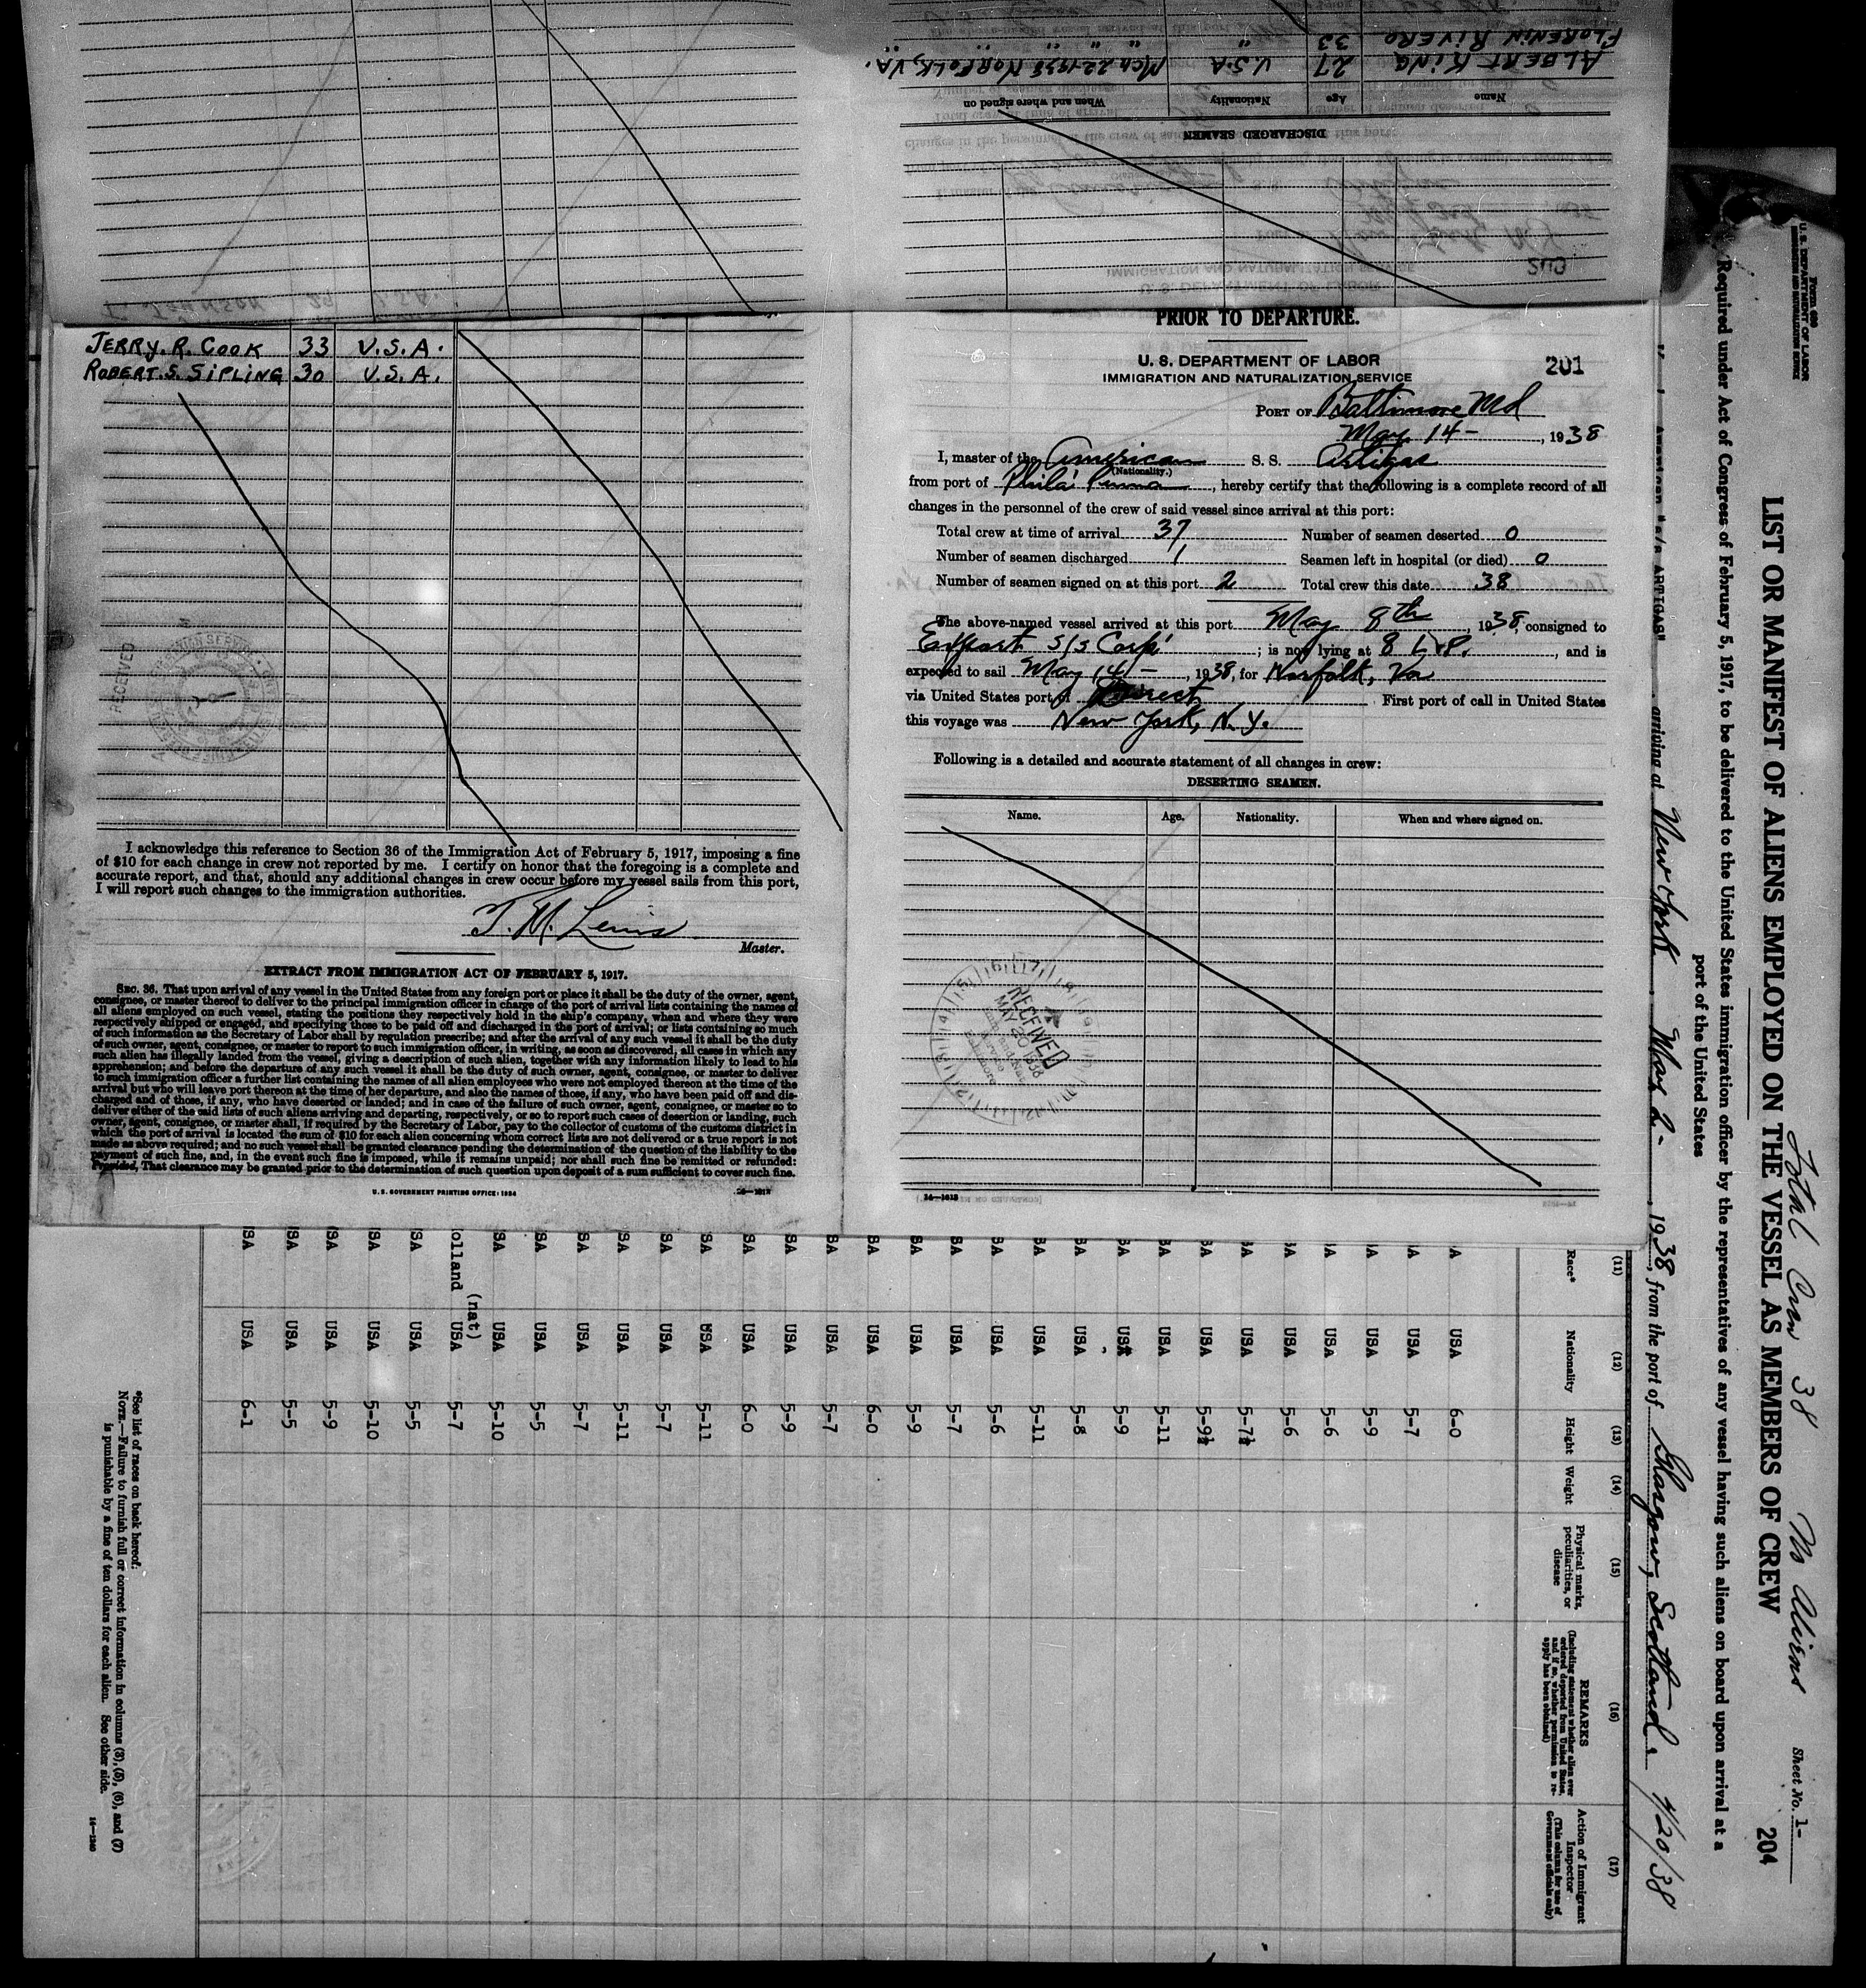 FLORENIN RIVERO 33 " " " "
ALBERT KING 27 U.S.A Mch 22-1938 NORFOLK, VA.
Name Age Nationality When and where signed on
DISCHARGED SEAMEN
JERRY. R. COOK 33 U.S.A.
ROBERT. S. SIPLING 30 U.S.A.
I acknowledge this reference to Section 36 of the Immigration Act of February 5, 1917, imposing a fine
of $10 for each change in crew not reported by me. I certify on honor that the foregoing is a complete and
accurate report, and that, should any additional changes in crew occur before my vessel sails from this port,
I will report such changes to the immigration authorities.
T. M. Lewis
Master.
EXTRACT FROM IMMIGRATION ACT OF FEBRUARY 5, 1917.
SEC. 36. That upon arrival of any vessel in the United States from any foreign port or place it shall be the duty of the owner, agent,
consignee, or master thereof to deliver to the principal immigration officer in charge of the port of arrival lists containing the names of
all aliens employed on such vessel, stating the positions they respectively hold in the ship's company, when and where they were
respectively shipped or engaged, and specifying those to be paid off and discharged in the port of arrival; or lists containing so much
of such information as the Secretary of Labor shall by regulation prescribe; and after the arrival of any such vessel it shall be the duty
of such owner, agent, consignee, or master to report to such immigration officer, in writing, as soon as discovered, all cases in which any
such alien has illegally landed from the vessel, giving a description of such alien, together with any information likely to lead to his
apprehension; and before the departure of any such vessel it shall be the duty of such owner, agent, consignee, or master to deliver
to such immigration officer a further list containing the names of all alien employees who were not employed thereon at the time of the
arrival but who will leave port thereon at the time of her departure, and also the names of those, if any, who have been paid off and dis-
charged and of those, if any, who have deserted or landed; and in case of the failure of such owner, agent, consignee, or master so to
deliver either of the said lists of such aliens arriving and departing, respectively, or so to report such cases of desertion or landing, such
owner, agent, consignee, or master shall, if required by the Secretary of Labor, pay to the collector of customs of the customs district in
which the port of arrival is located the sum of $10 for each alien concerning whom correct lists are not delivered or a true report is not
made as above required; and no such vessel shall be granted clearance pending the determination of the question of the liability to the
payment of such fine, and, in the event such fine is imposed, while it remains unpaid; nor shall such fine be remitted or refunded:
Provided, That clearance may be granted prior to the determination of such question upon deposit of a sum sufficient to cover such fine.
U. S. GOVERNMENT PRINTING OFFICE: 1934
PRIOR TO DEPARTURE.
U. S. DEPARTMENT OF LABOR
IMMIGRATION AND NATURALIZATION SERVICE
201
PORT OF Baltimore Md
May 14 -, 1938
I, master of the American S. S. Artigas
(Nationality.)
from port of Phila. Penna, hereby certify that the following is a complete record of all
changes in the personnel of the crew of said vessel since arrival at this port:
Total crew at time of arrival 37 Number of seamen deserted 0
Number of seamen discharged 1 Seamen left in hospital (or died) 0
Number of seamen signed on at this port 2 Total crew this date 38
The above-named vessel arrived at this port May 8th, 1938, consigned to
Export S/S Corp'; is now lying at 8 L.P., and is
expected to sail May 14 -, 1938, for Norfolk, Va
via United States port of Direct First port of call in United States
this voyage was New York, N.Y.
Following is a detailed and accurate statement of all changes in crew:
DESERTING SEAMEN.
Name. Age. Nationality. When and where signed on.
RECEIVED
MAY 20 1938
Baltimore
14—1613
Form 680
U. S. DEPARTMENT OF LABOR
IMMIGRATION AND NATURALIZATION SERVICE
Total Crew 38 No Aliens
Sheet No. 1-
204
LIST OR MANIFEST OF ALIENS EMPLOYED ON THE VESSEL AS MEMBERS OF CREW
Required under Act of Congress of February 5, 1917, to be delivered to the United States immigration officer by the representatives of any vessel having such aliens on board upon arrival at a
port of the United States
American "s/s ARTIGAS" arriving at New York, May 2-, 1938, from the port of Glasgow, Scotland. 4/20/38
(11) (12) (13) (14) (15) (16) (17)
Race* Nationality Height Weight Physical marks, peculiarities, or disease
REMARKS
(Including statement whether alien ever ordered deported from United States, and if so, whether permission to re-apply has been obtained)
Action of Immigrant Inspector
(This column for use of Government officials only)
A USA 6-0
A USA 5-7
A USA 5-9
A USA 5-6
A USA 5-6
A USA 5-7½
SA USA 5-9½
SA USA 5-11
SA USA 5-9
SA USA 5-8
SA USA 5-11
SA USA 5-6
SA USA 5-7
SA USA 5-9
SA USA 6-0
SA USA 5-7
SA USA 5-9
SA USA 6-0
SA USA 5-11
SA USA 5-7
SA USA 5-11
SA USA 5-7
SA USA 5-5
SA USA 5-10
(nat)
olland USA 5-7
SA USA 5-5
SA USA 5-10
SA USA 5-9
SA USA 5-5
SA USA 6-1
*See list of races on back hereof.
NOTE.—Failure to furnish full or correct information in columns (3), (5), (6), and (7)
is punishable by a fine of ten dollars for each alien. See other side.
14—1240